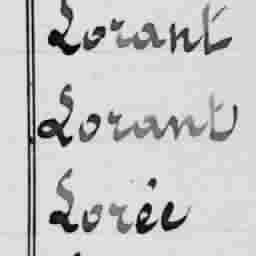 Lorant
Lorant
Lorée